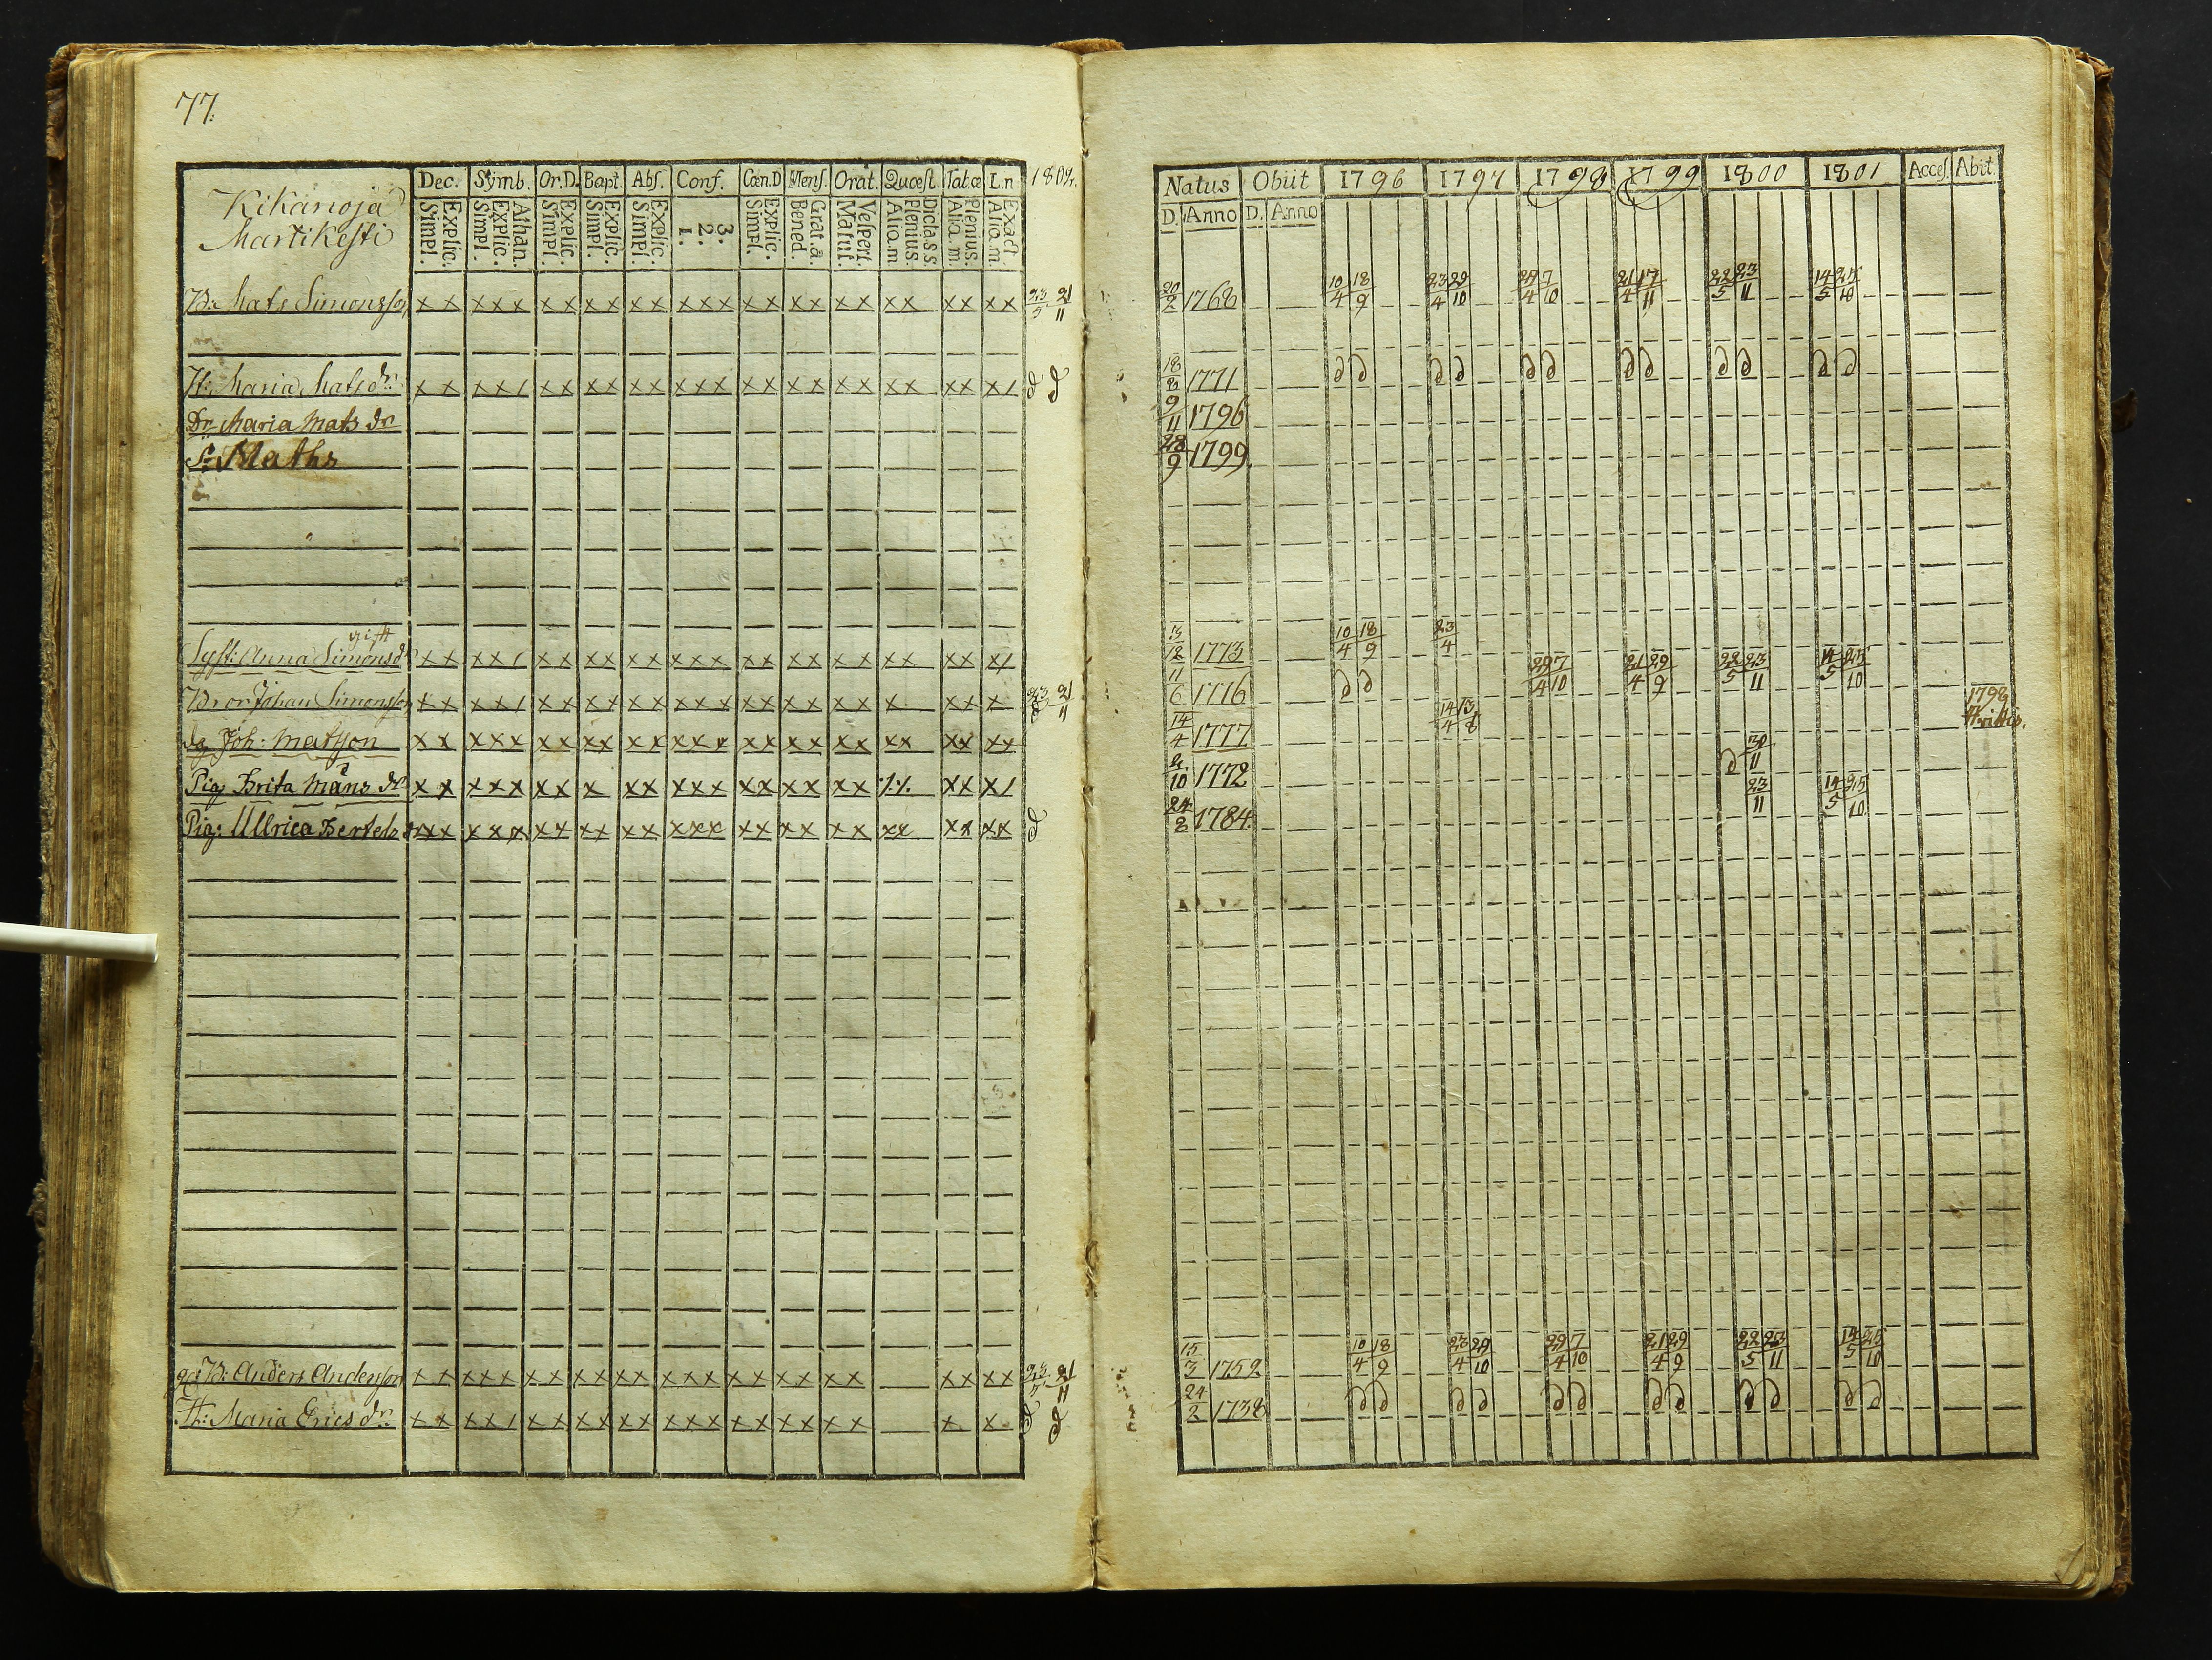 77.
Dec. Symb. Or.D. Bapt. Abs. Conf. Cœn.D Mens. Orat. Quæst. Tabæ L.n 1802.
Kikanoja
Martikesti
Explic. Simpl. Athan. Explic. Simpl. Explic. Simpl. Explic. Simpl. Explic. Simpl. 3. 2. 1. Explic. Simpl. Grat. a. Bened. Vespert. Matut. Dicta S S. Plenius. Alio.m Plenius. Alia.m. Exact. Alio.m.
B: Mats Simonsson x x x x x x x x x x x x x x x x x x x x x x x x x x x 23/5 21/11
H: Maria Mats dr. x x x x / x x x x x x x x x x x x x x x x x x x x x / d d
Dr Maria Mats dr
S: Maths
gift
Syst: Anna Simonsdr x x x x / x x x x x x x x x x x x x x x x x x x x x /
Bror Johan Simonsson x x x x / x x x x x x x x x x x x x x x x x x x x 23/5 21/11
Joh: Matsson x x x x x x x x x x x x x x x x x x x x x x x x x x
Pig: Brita Måns dr x x x x x x x x x x x x x x x x x x x x ٪ x x x /
Pig: Ullrica Bertels dr x x x x x x x x x x x x x x x x x x x x x x x x x x d
B: Anders Andersson x x x x x x x x x x x x x x x x x x x x x x x x x 23/5 21/11
H: Maria Erics dr. x x x x / x x x x x x x x x x x x x x x x x x d d
Natus Obiit 1796 1797 1798 1799 1800 1801 Acces. Abit
D. Anno D. Anno
20/2 1768 10/4 18/9 23/4 29/10 29/4 7/10 21/4 17/11 22/5 23/11 14/5 25/10
18/8 1771 d d d d d d d d d d d d
9/11 1796
28/9 1799.
13/12 1773 10/4 18/9 23/4
11/6 1776 d d 29/4 7/10 21/4 29/9 22/5 23/11 14/5 25/10
14/4 1777 14/4 13/8 1798
10 1772 d 30/11
24/8 1784. 23/11 14/5 25/10
15/3 1759 10/4 18/9 23/4 29/10 29/4 7/10 21/4 29/9 22/5 23/11 14/5 25/10
24/2 1738 d d d d d d d d d d d d